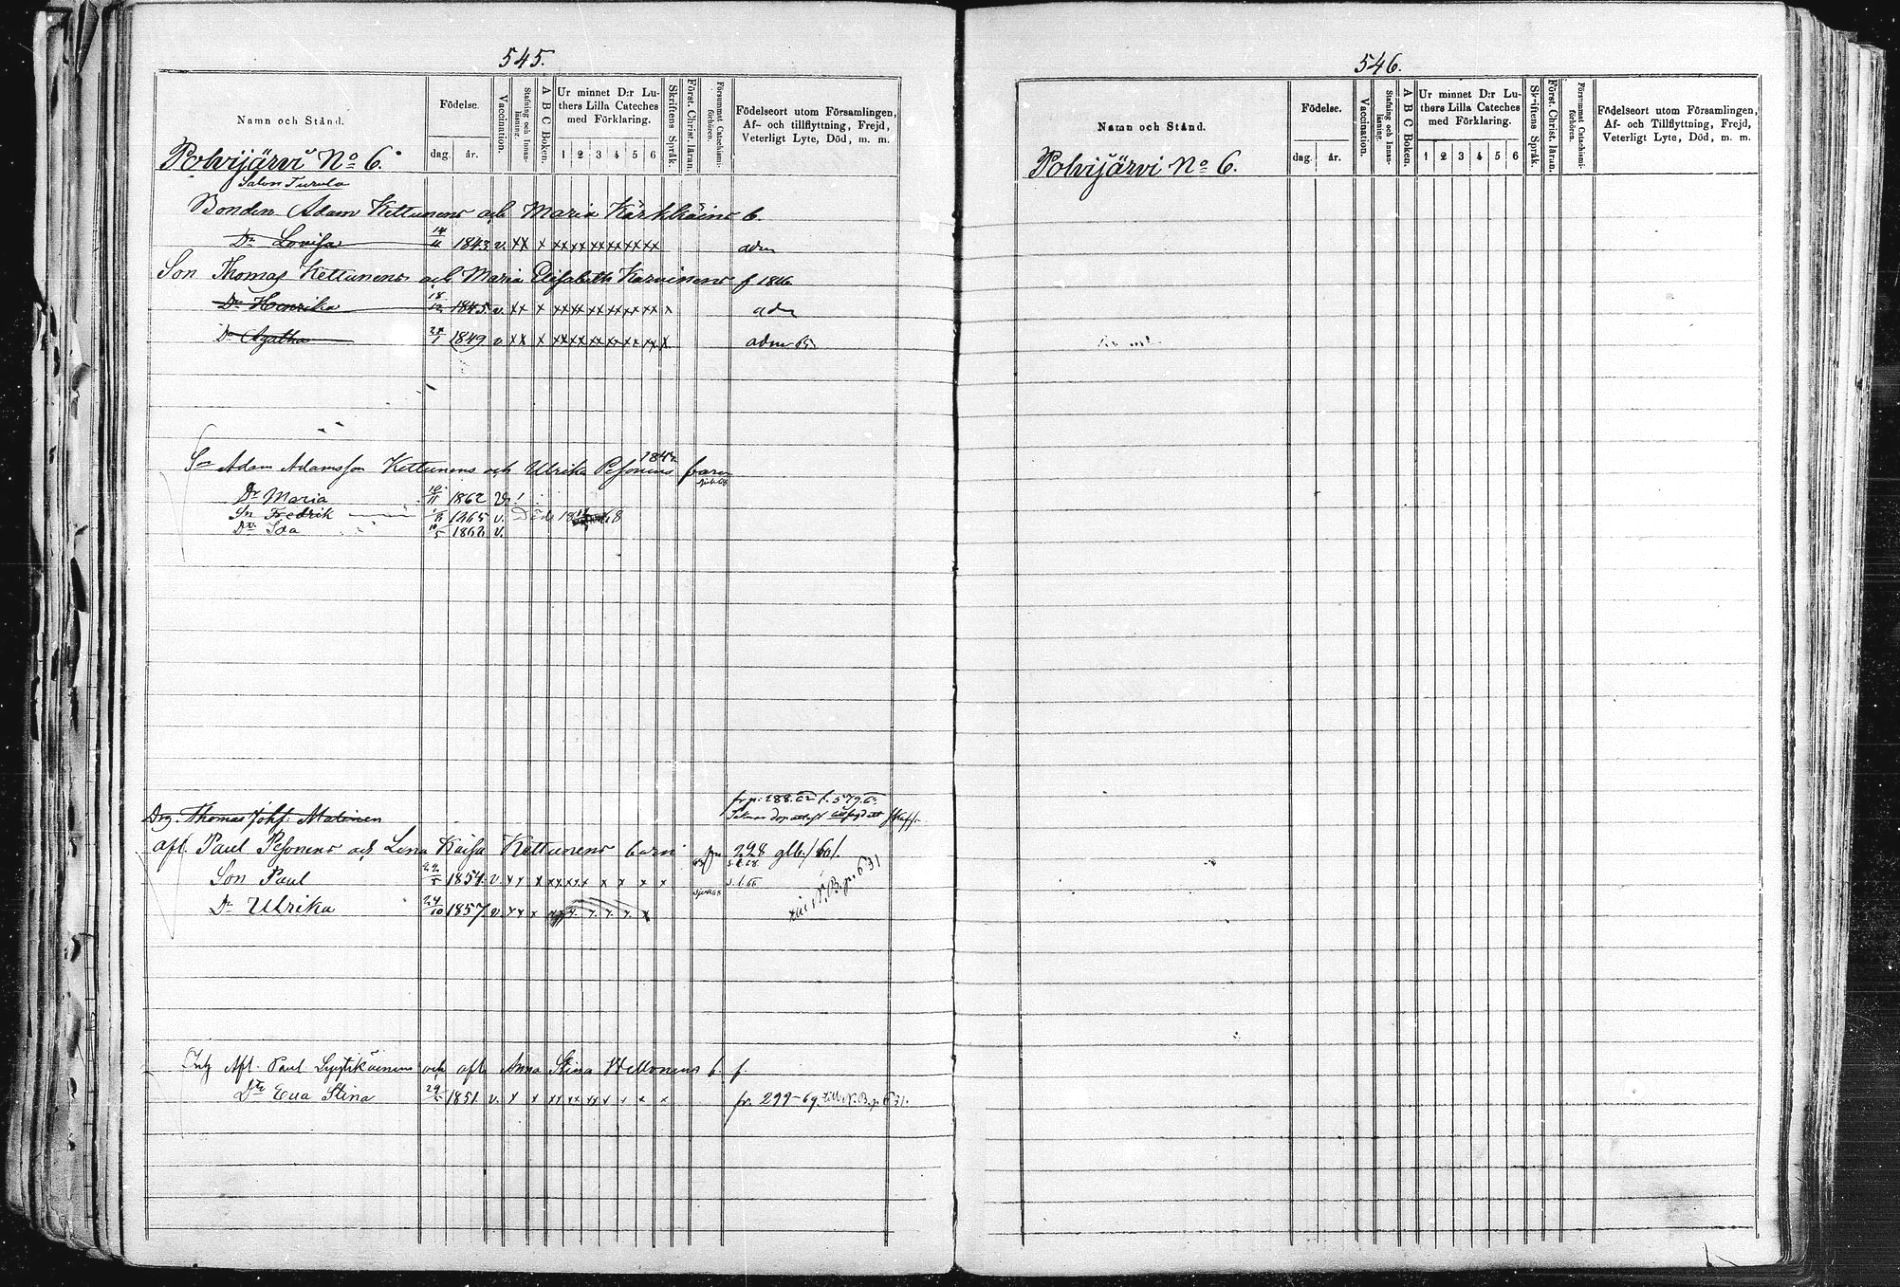 545.
Namn och Stånd.
Födelse.
dag.
år.
Vaccination.
Stafning och Innanläsning.
A B C Boken.
Ur minnet D:r Luthers Lilla Cateches med Förklaring.
1 2 3 4 5 6
Skriftens Språk.
Först. Christ. läran.
Försummat Catechismiförhören.
Födelseort utom Församlingen,
Af- och tillflyttning, Frejd,
Veterligt Lyte, Död, m. m.
Polvijärvi No 6.
Bonden Adam Kettunens och Maria Kärkkäins b.
Dr Lovisa 14/11 1843 v. xx x xx xx xx xx xx xx adm
Son Thomas Kettunens och Maria Elisabeth Karvinens f 1846
Dr Henrika 18/12 1845 v. xx x xx xx xx xx xx xx x adm
Dr Agatha 1849 v xx x xx xx xx xx xx xx x adm 65
1842
Sn Adam Adamsson Kettunens och Ulrika Pesonens barn
Dr Maria 10/11 1862
Sn Fredrik 1865 v. Död 68
Dr Ida 10/5 1868 v.
fr p. 288.62 f. 579.
Drg. Thomas Johs. Matinen
afl. Paul Pesonens och Lena Kaisa Kettunens barn 298
Son Paul 22/5 1854 v. xx x xx xx x x x x
Dr Ulrika 24/10 1857 v xx x
till N.B. p. 631
Inh Afl. Paul Lyytikäinens och afl. Anna Stina Hellonens b. f.
Dtr Eva Stina 1851 v. x x xx xx xx x x x x fr. 299-69 till N.B. p. 631.
546.
Namn och Stånd.
Födelse.
dag.
år.
Vaccination.
Stafning och Innanläsning.
A B C Boken.
Ur minnet D:r Luthers Lilla Cateches med Förklaring.
1 2 3 4 5 6
Skriftens Språk.
Först. Christ. läran.
Försummat Catechismiförhören.
Födelseort utom Församlingen,
Af- och Tillflyttning, Frejd,
Veterligt Lyte, Död, m. m.
Polvijärvi No 6.